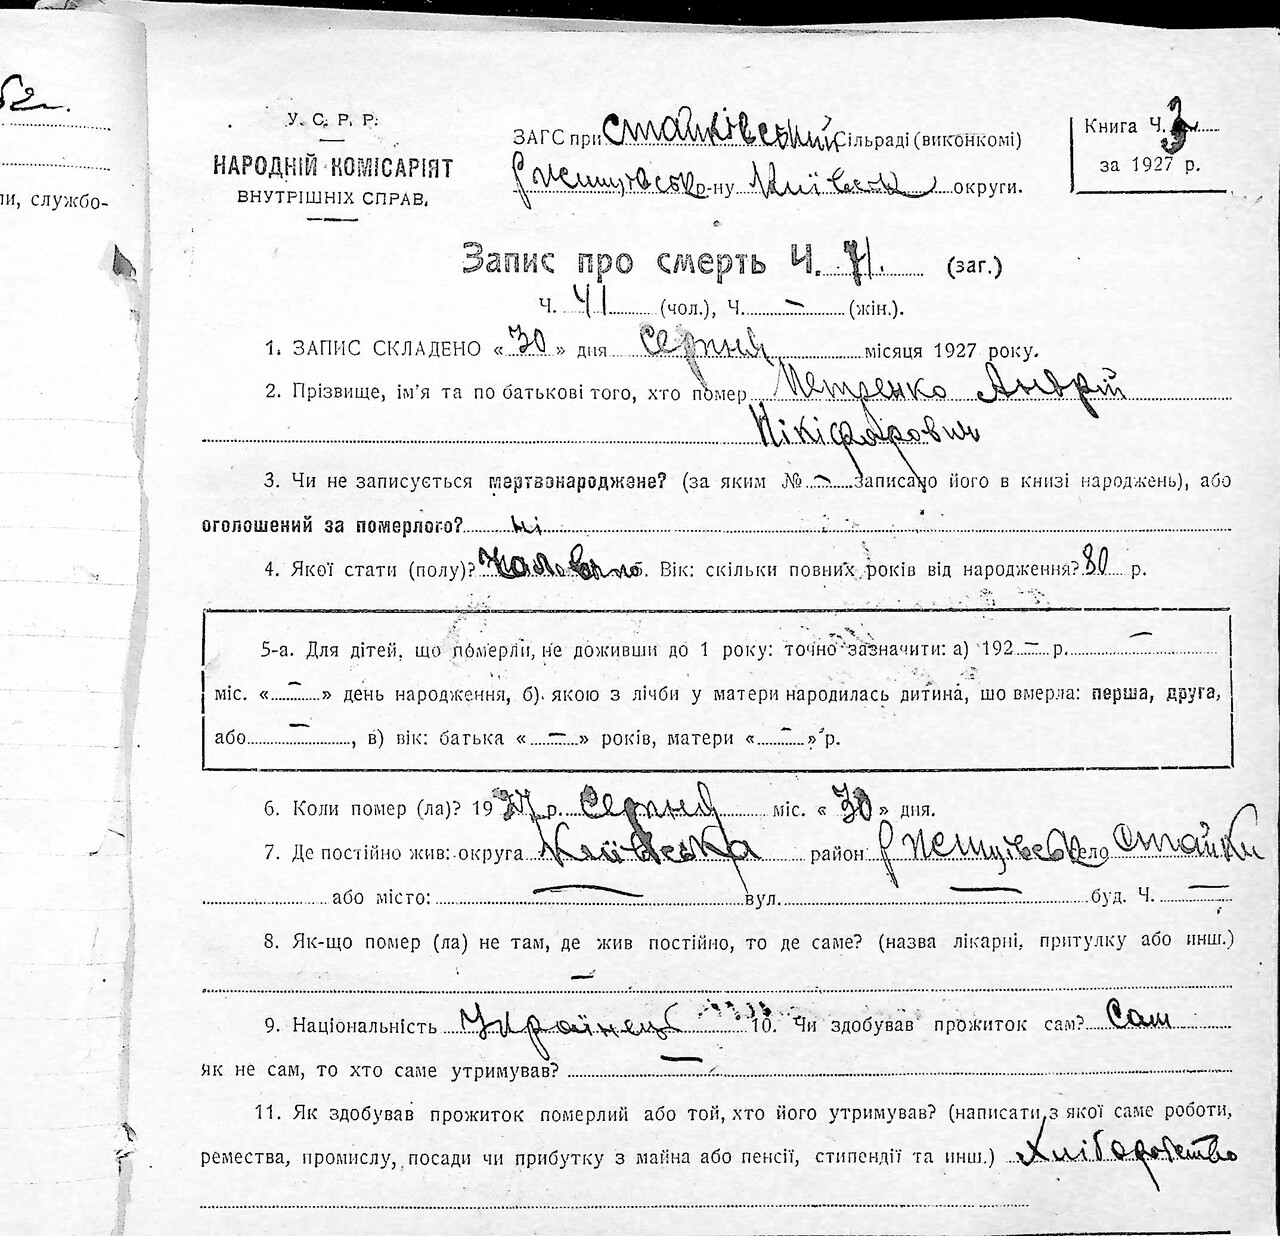 62 г.
ли, службо-
У. С. Р. Р.
НАРОДНІЙ КОМІСАРІЯТ
ВНУТРІШНІХ СПРАВ.
ЗАГС при Стайківський Сільраді (виконкомі)
Ржищівськ р-ну Київськ округи.
Книга Ч. 3
за 1927 р.
Запис про смерть Ч. 71. (заг.)
Ч. 41 (чол.), Ч. – (жін.).
1. ЗАПИС СКЛАДЕНО « 30 » дня Серпня місяця 1927 року.
2. Прізвище, ім'я та по батькові того, хто помер Петренко Андрій
Нікіфорович
3. Чи не записується мертвонароджене? (за яким № – записано його в книзі народжень), або
оголошений за померлого? ні
4. Якої стати (полу)? Вік: скільки повних років від народження? 80 р.
5-а. Для дітей, що померли, не доживши до 1 року: точно зазначити: а) 192 – р. –
міс. « – » день народження, б). якою з лічби у матери народилась дитина, шо вмерла: перша, друга,
або – , в) вік: батька « – » років, матери « – » р.
6. Коли помер (ла)? 1927 р. Серпня міс. « 30 » дня.
7. Де постійно жив: округа Київська район Ржищівськ село Стайки
або місто: – вул. – буд. Ч. –
8. Як-що помер (ла) не там, де жив постійно, то де саме? (назва лікарні, притулку або инш.)
–
9. Національність Українець 10. Чи здобував прожиток сам? Сам
як не сам, то хто саме утримував? –
11. Як здобував прожиток померлий або той, хто його утримував? (написати з якої саме роботи,
ремества, промислу, посади чи прибутку з майна або пенсії, стипендії та инш.) Хліборобство